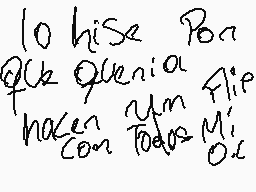 lo hise Por
que queria
hacer un Flip
con Todos Mi
O.c